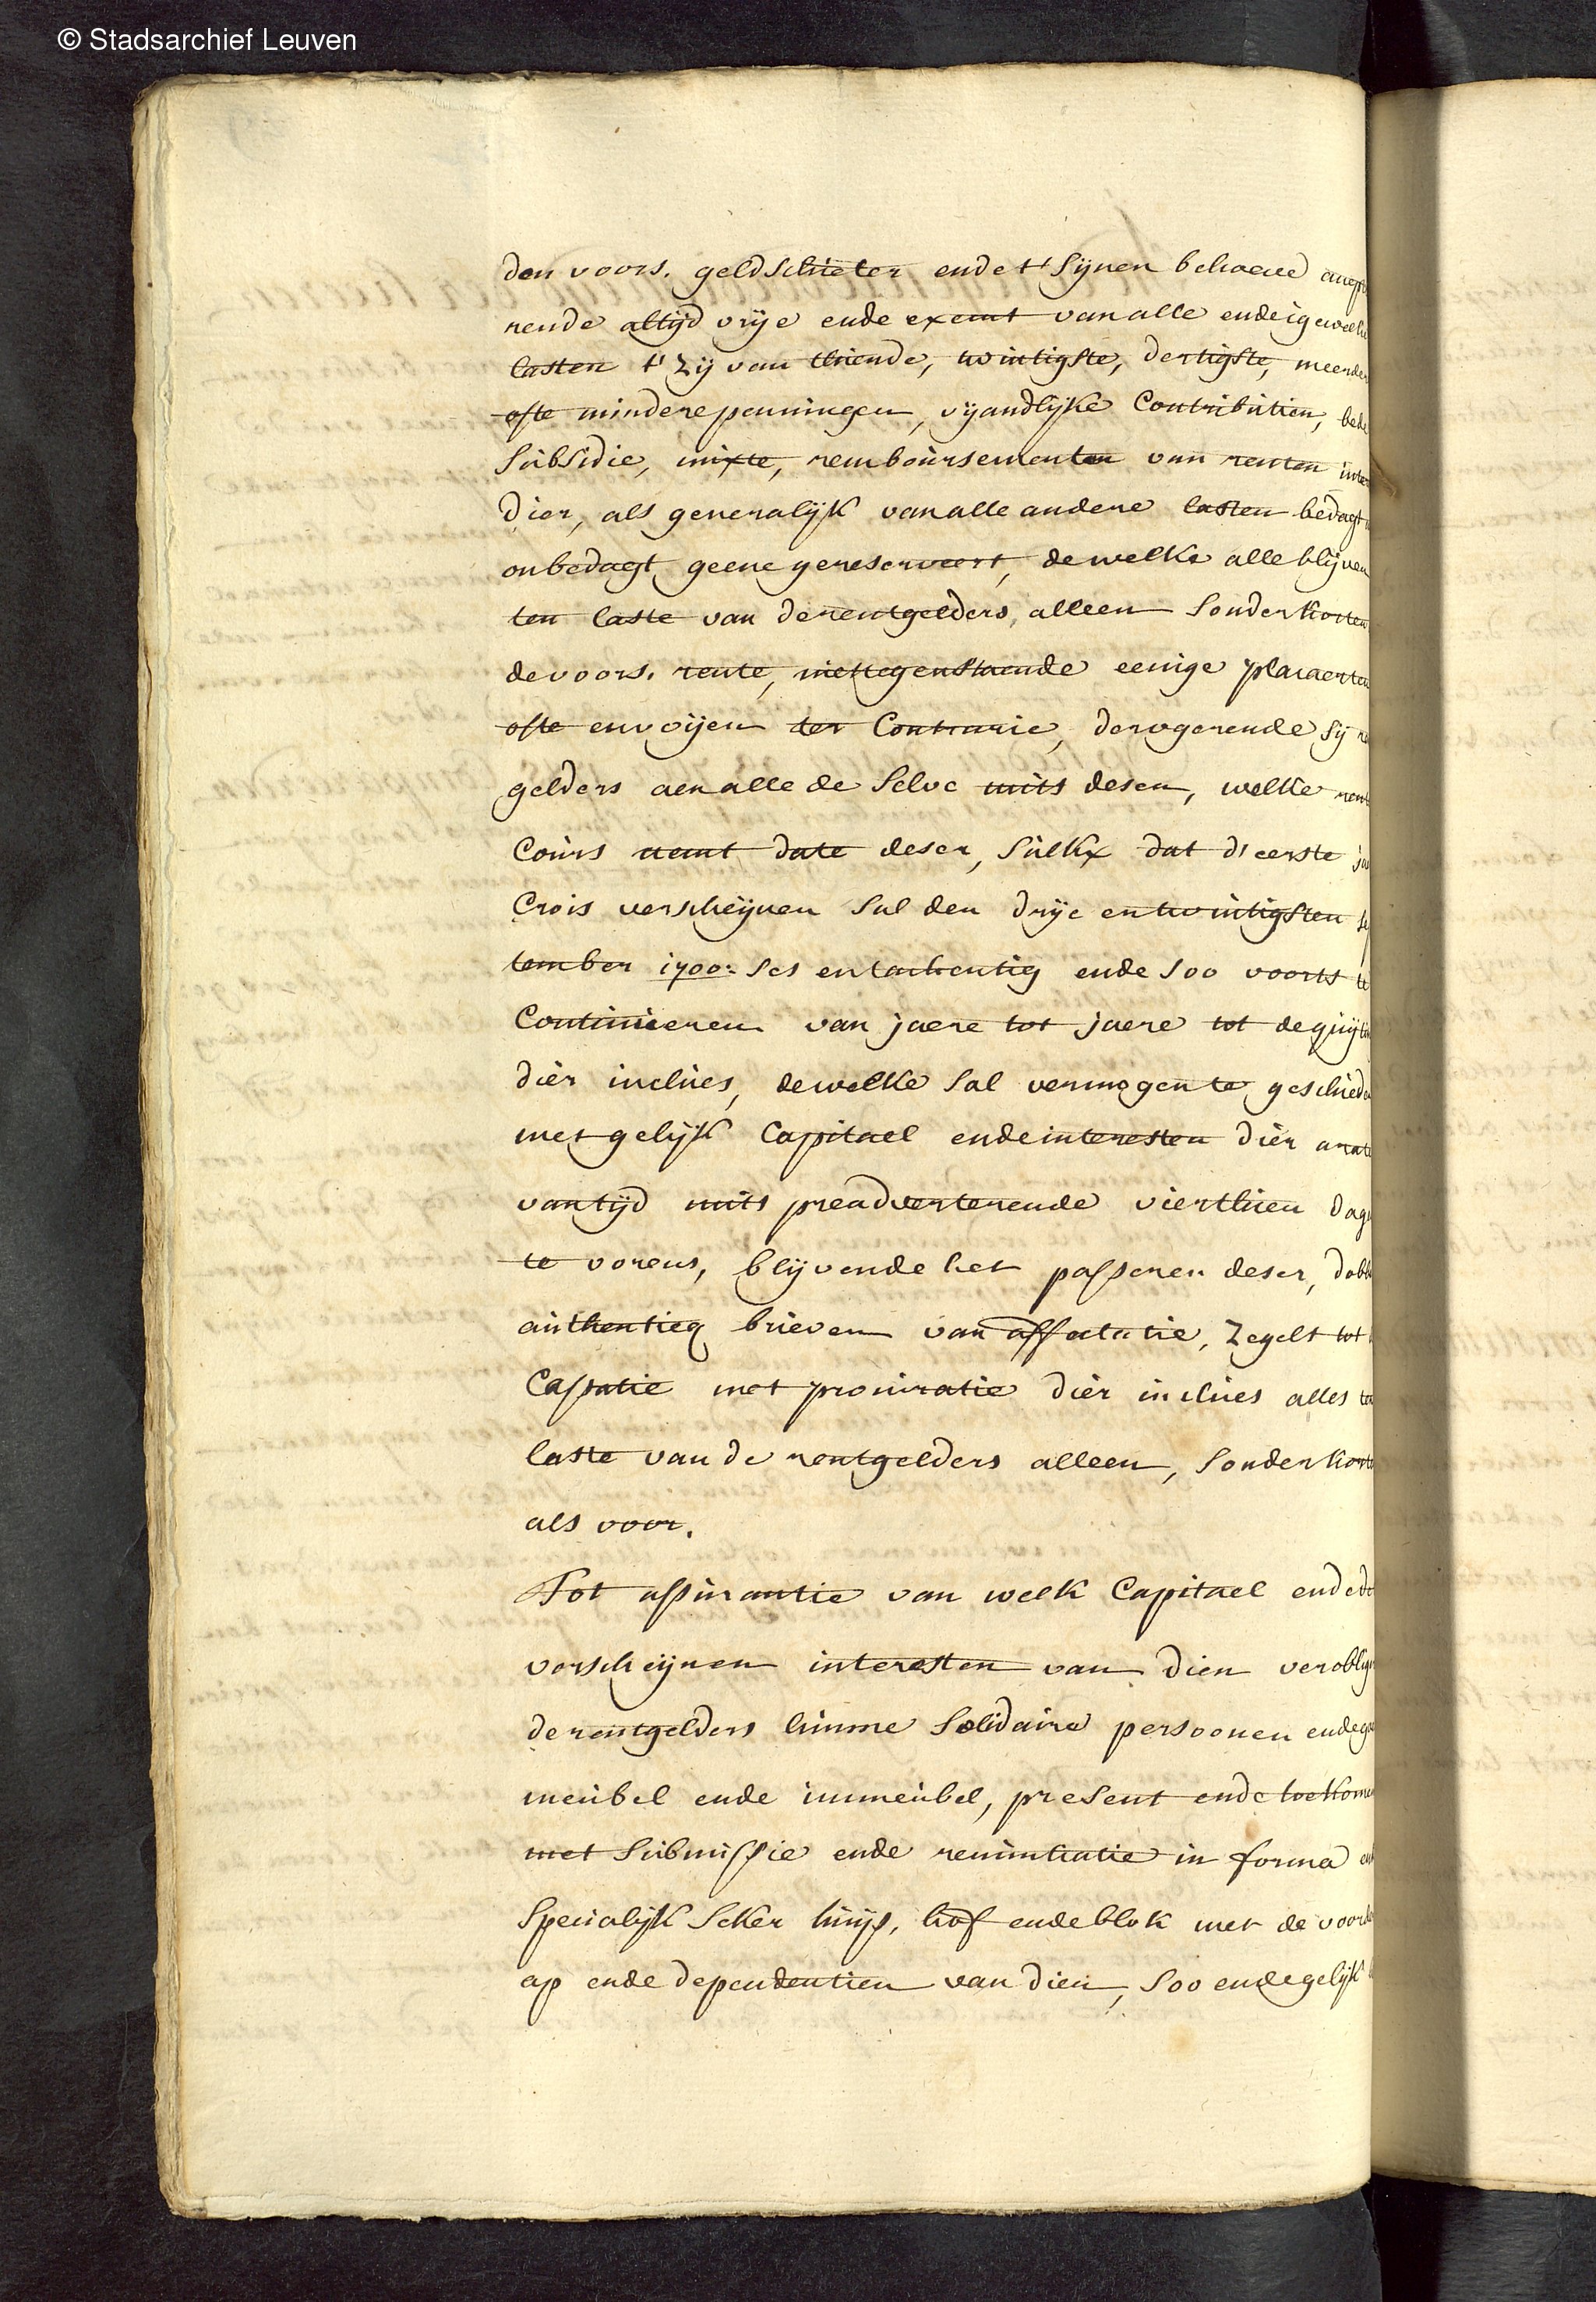 © Stadsarchief Leuven
den voors. geldschieter ende t'sijnen behoeve
rende altijd vrije ende exemt van alle ende igewelke
lasten t'zij van thiende, twintigste, dertigste, meerder
ofte mindere penningen, vijandlijke Contributien, bede
subsidie, mixte, remboursementen van renten inter
dier, als generalijk van alle andere lasten bedagt
onbedagt geene gereserveert, dewelke alle blijven
ten laste van de rentgelders, alleen sonder korten
de voors. rente, niettegenstaende eenige placaerten
ofte envoijen ter Contrarie, derogerende sij
gelders aen alle de selve mits desen, welke rent
Cours nemt date deser, sulkx dat d'eerste ja
Crois verscheijnen sal den drije en twintigsten sep
tember 1700: ses entachentig ende soo voorts te
Continueren van jaere tot jaere tot de quijt
dier inclues, dewelke sal vermogen te geschieden
met gelijk Capitael ende interesten dier a rato
van tijd mits preadverterende vierthien dag
te vorens, blijvende het passeren deser, dobb
authentieq brieven van affectatie, zegels tot
Cassatie met procuratie dier inclues alles ten
laste van de rentgelders alleen, sonder korte
als voor.
Tot assurantie van welk Capitael ende de
verscheijnen interesten van dien verobliger
de rentgelders hunne solidaire persoonen ende go
meubel ende immeubel, present ende toekomen
met submissie ende renuntiatie in forma
specialijk seker huijs, hof ende blok met de voorde
ap ende dependentien van dien, soo ende gelijk